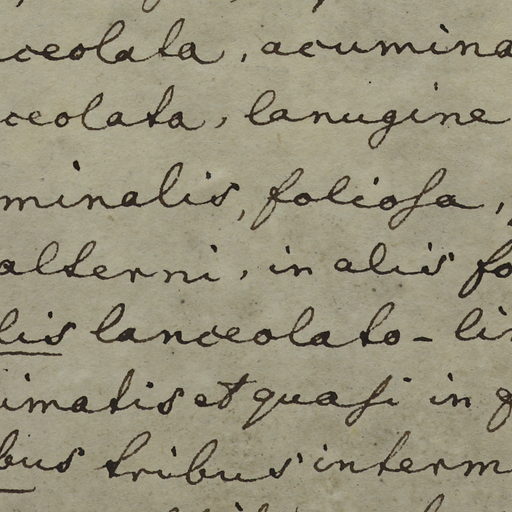 ceolata, acumina
ceolata, lanugine
minalis, foliosa,
alterni, in alis fo
lis lanceolato-li
imatis et quasi in
bus tribus interm